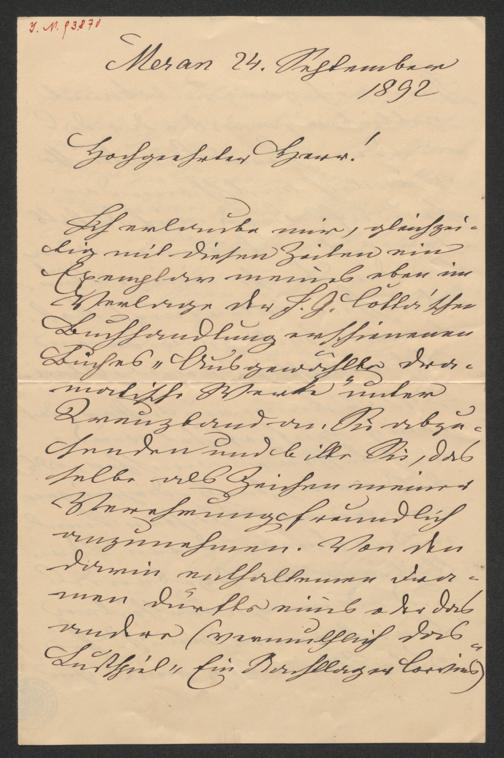 J. N. 93870
Meran 24. September
1892
Hochgeehrter Herr!
Ich erlaube mir, gleichzei-
tig mit diesen Zeilen ein
Exemplar meines eben im
Verlage der J. G. Cotta'schen
Buchhandlung erschienenen
Buches „Ausgewählte dra-
matische Werke" unter
Kreuzband an Sie abzu-
senden und bitte Sie, das
selbe als Zeichen meiner
Verehrung freundlich
anzunehmen. Von den
darin enthaltenen Dra-
men dürfte eines oder das
andere (vermuthlich das
Lustspiel „Ein Nachtlager Corvins")